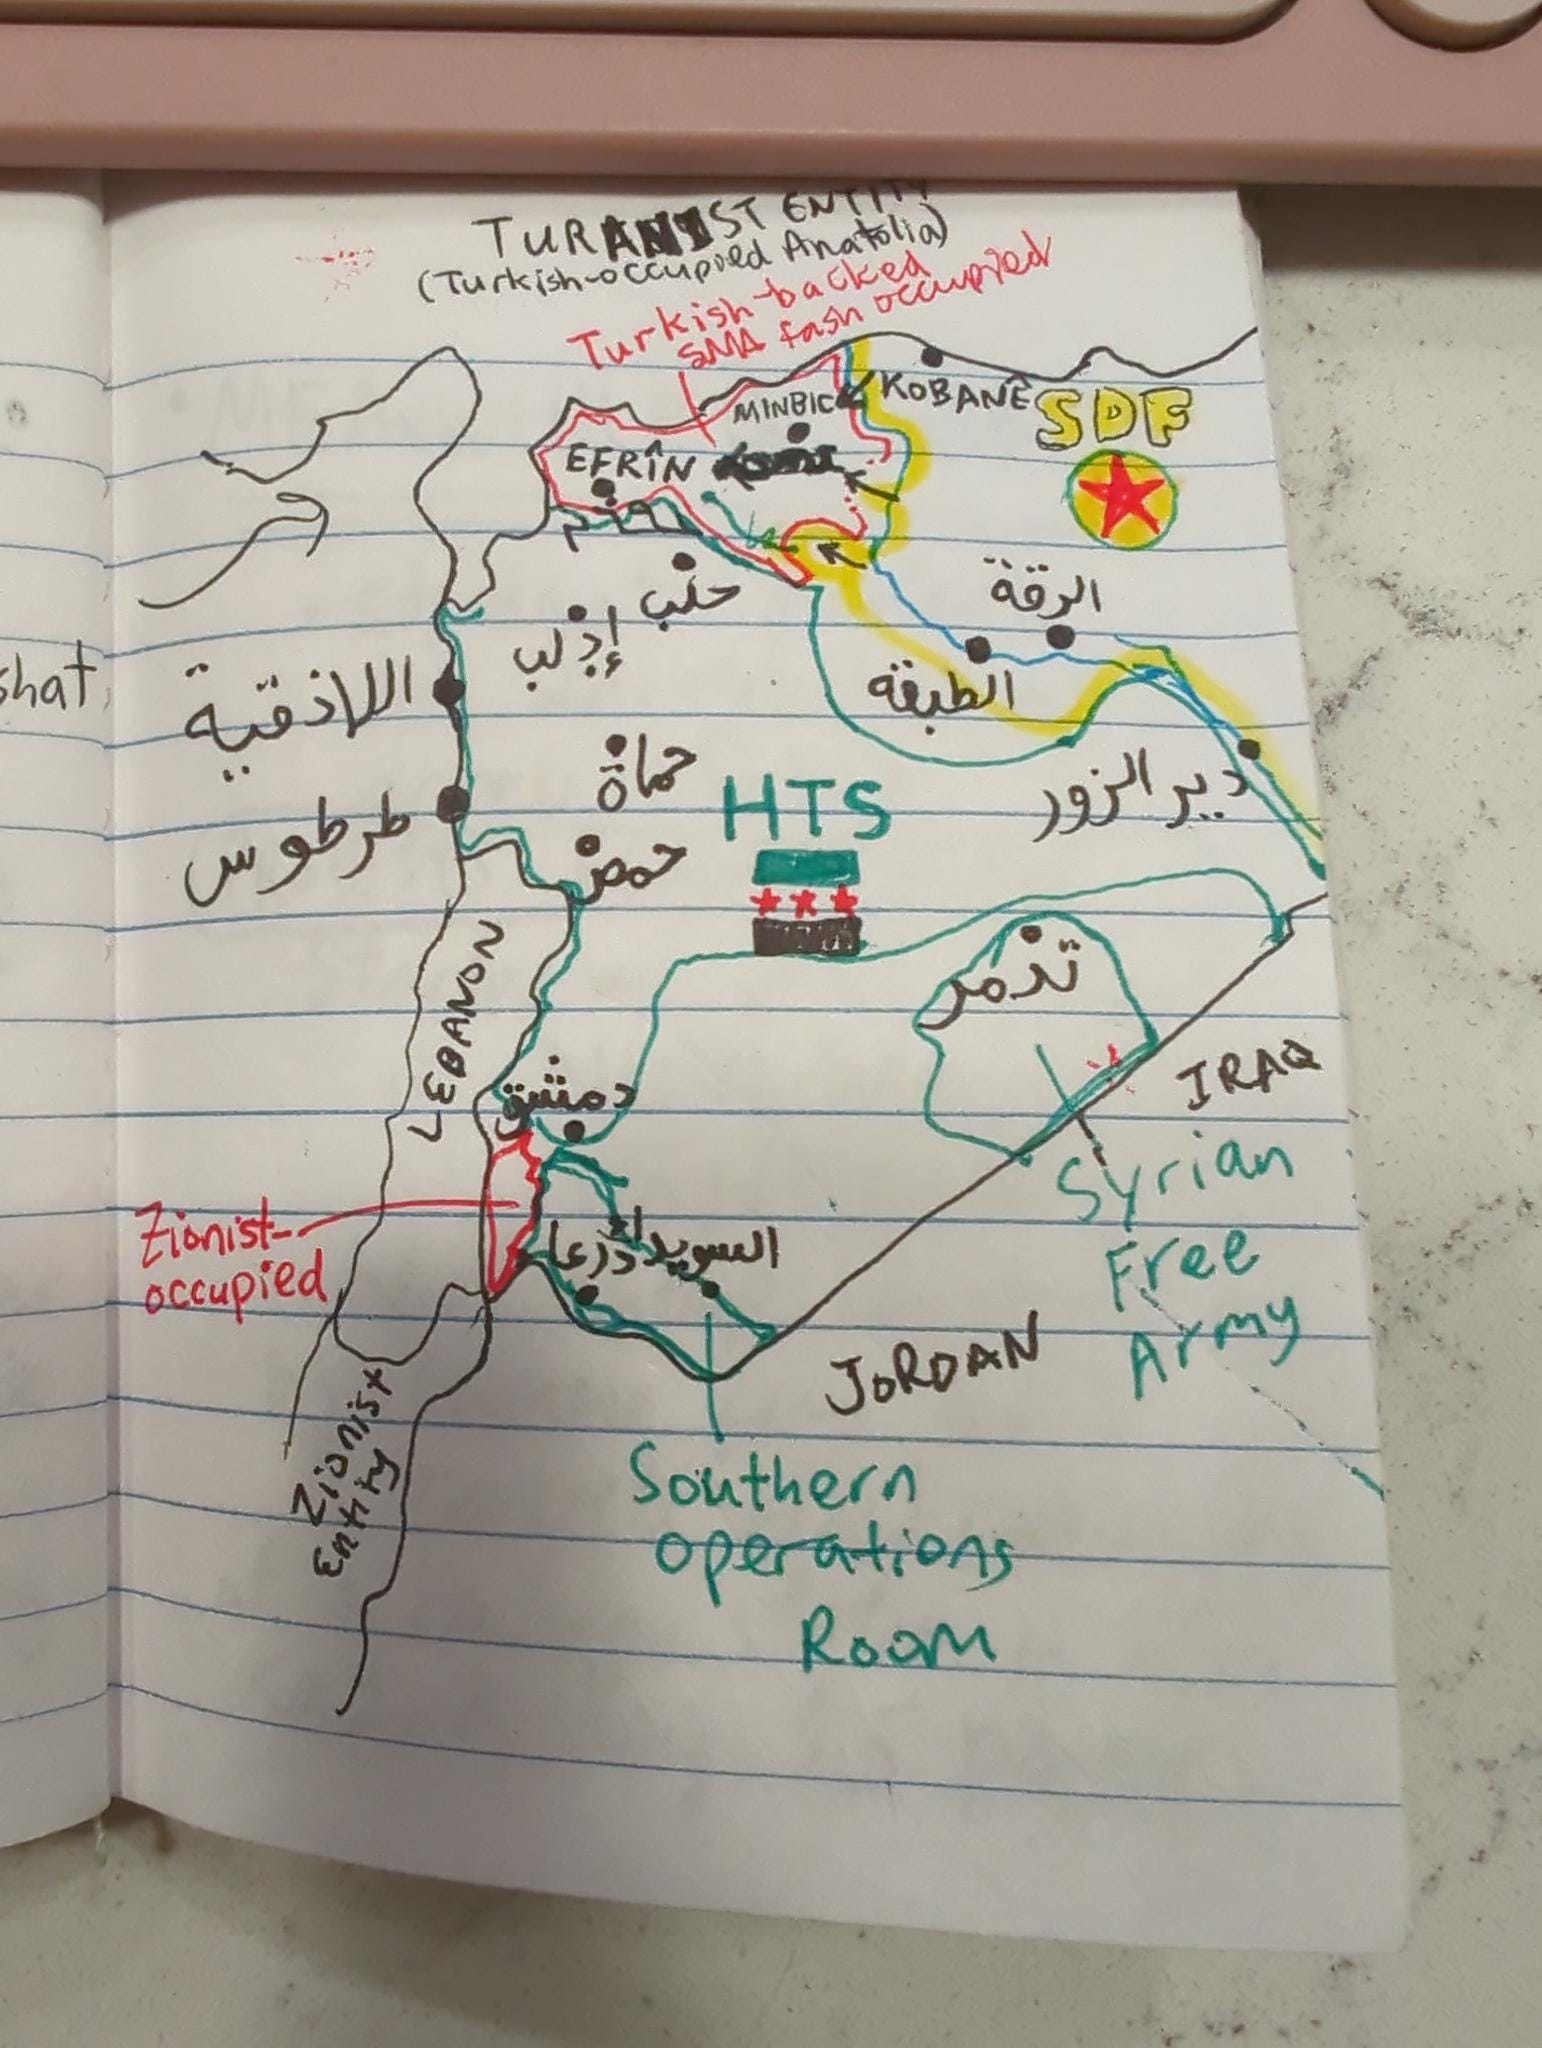 shat
TURANIST ENTITY
(Turkish-occupied Anatolia)
Turkish-backed
SMA fash occupied
KOBANÊ
MINBIC
SDF
EFRÎN
حلب
إدلب
الرقة
الطبقة
اللاذقية
حماة
دير الزور
HTS
طرطوس
حمص
LEBANON
تدمر
IRAQ
دمشق
Syrian
Free
Army
Zionist-
occupied
السويداء
درعا
JORDAN
Zionist
Entity
Southern
operations
Room